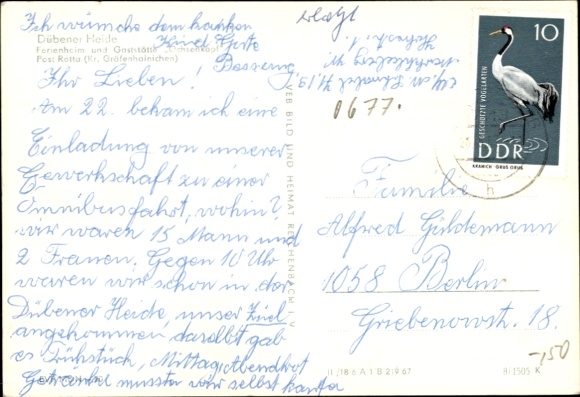 Ich wünsche dem kranken
Kind Gute
Besserung
Dübener Heide
Ferienheim und Gaststätte „Ochsenkopf“
Post Rotta (Kr. Gräfenhainichen)
Ihr Lieben!
Am 22. bekam ich eine
Einladung von unserer
Gewerkschaft zu einer
Omnibusfahrt, wohin?
wir waren 15 Mann und
2 Frauen. Gegen 10 Uhr
waren wir schon in der
Dübener Heide, unser Ziel
angekommen, daselbst gab
es Frühstück, Mittag, Abendbrot
Getränke mussten wir selbst kaufen
VEB BILD UND HEIMAT REICHENBACH I. V.
II/18/6 A 1 B 219 67
8/1505 K
0677.
10
GESCHÜTZTE VOGELARTEN
DDR
KRANICH · GRUS GRUS
Familie
Alfred Güldemann
1058 Berlin
Griebenowstr. 18.
-,50